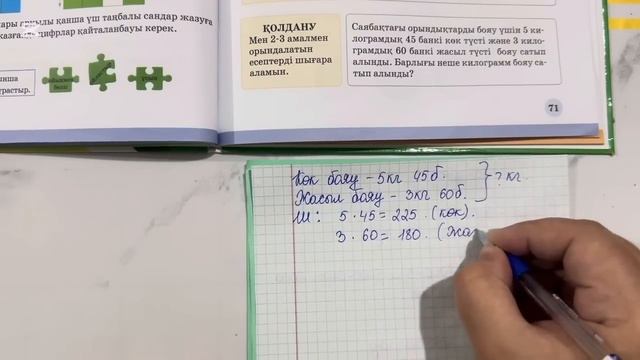 ары арқылы қанша үш таңбалы сандар жазуға
цифрлар қайталанбауы керек.
ынша
растыр.
ҚОЛДАНУ
Мен 2-3 амалмен
орындалатын
есептерді шығара
аламын.
Саябақтағы орындықтарды бояу үшін 5 ки-
лограмдық 45 банкі көк түсті және 3 кило-
грамдық 60 банкі жасыл түсті бояу сатып
алынды. Барлығы неше килограмм бояу са-
тып алынды?
71
Көк бояу – 5кг 45б.
Жасыл бояу – 3кг 60б.
? кг
Ш: 5 · 45 = 225 (көк).
3 · 60 = 180. (Жас